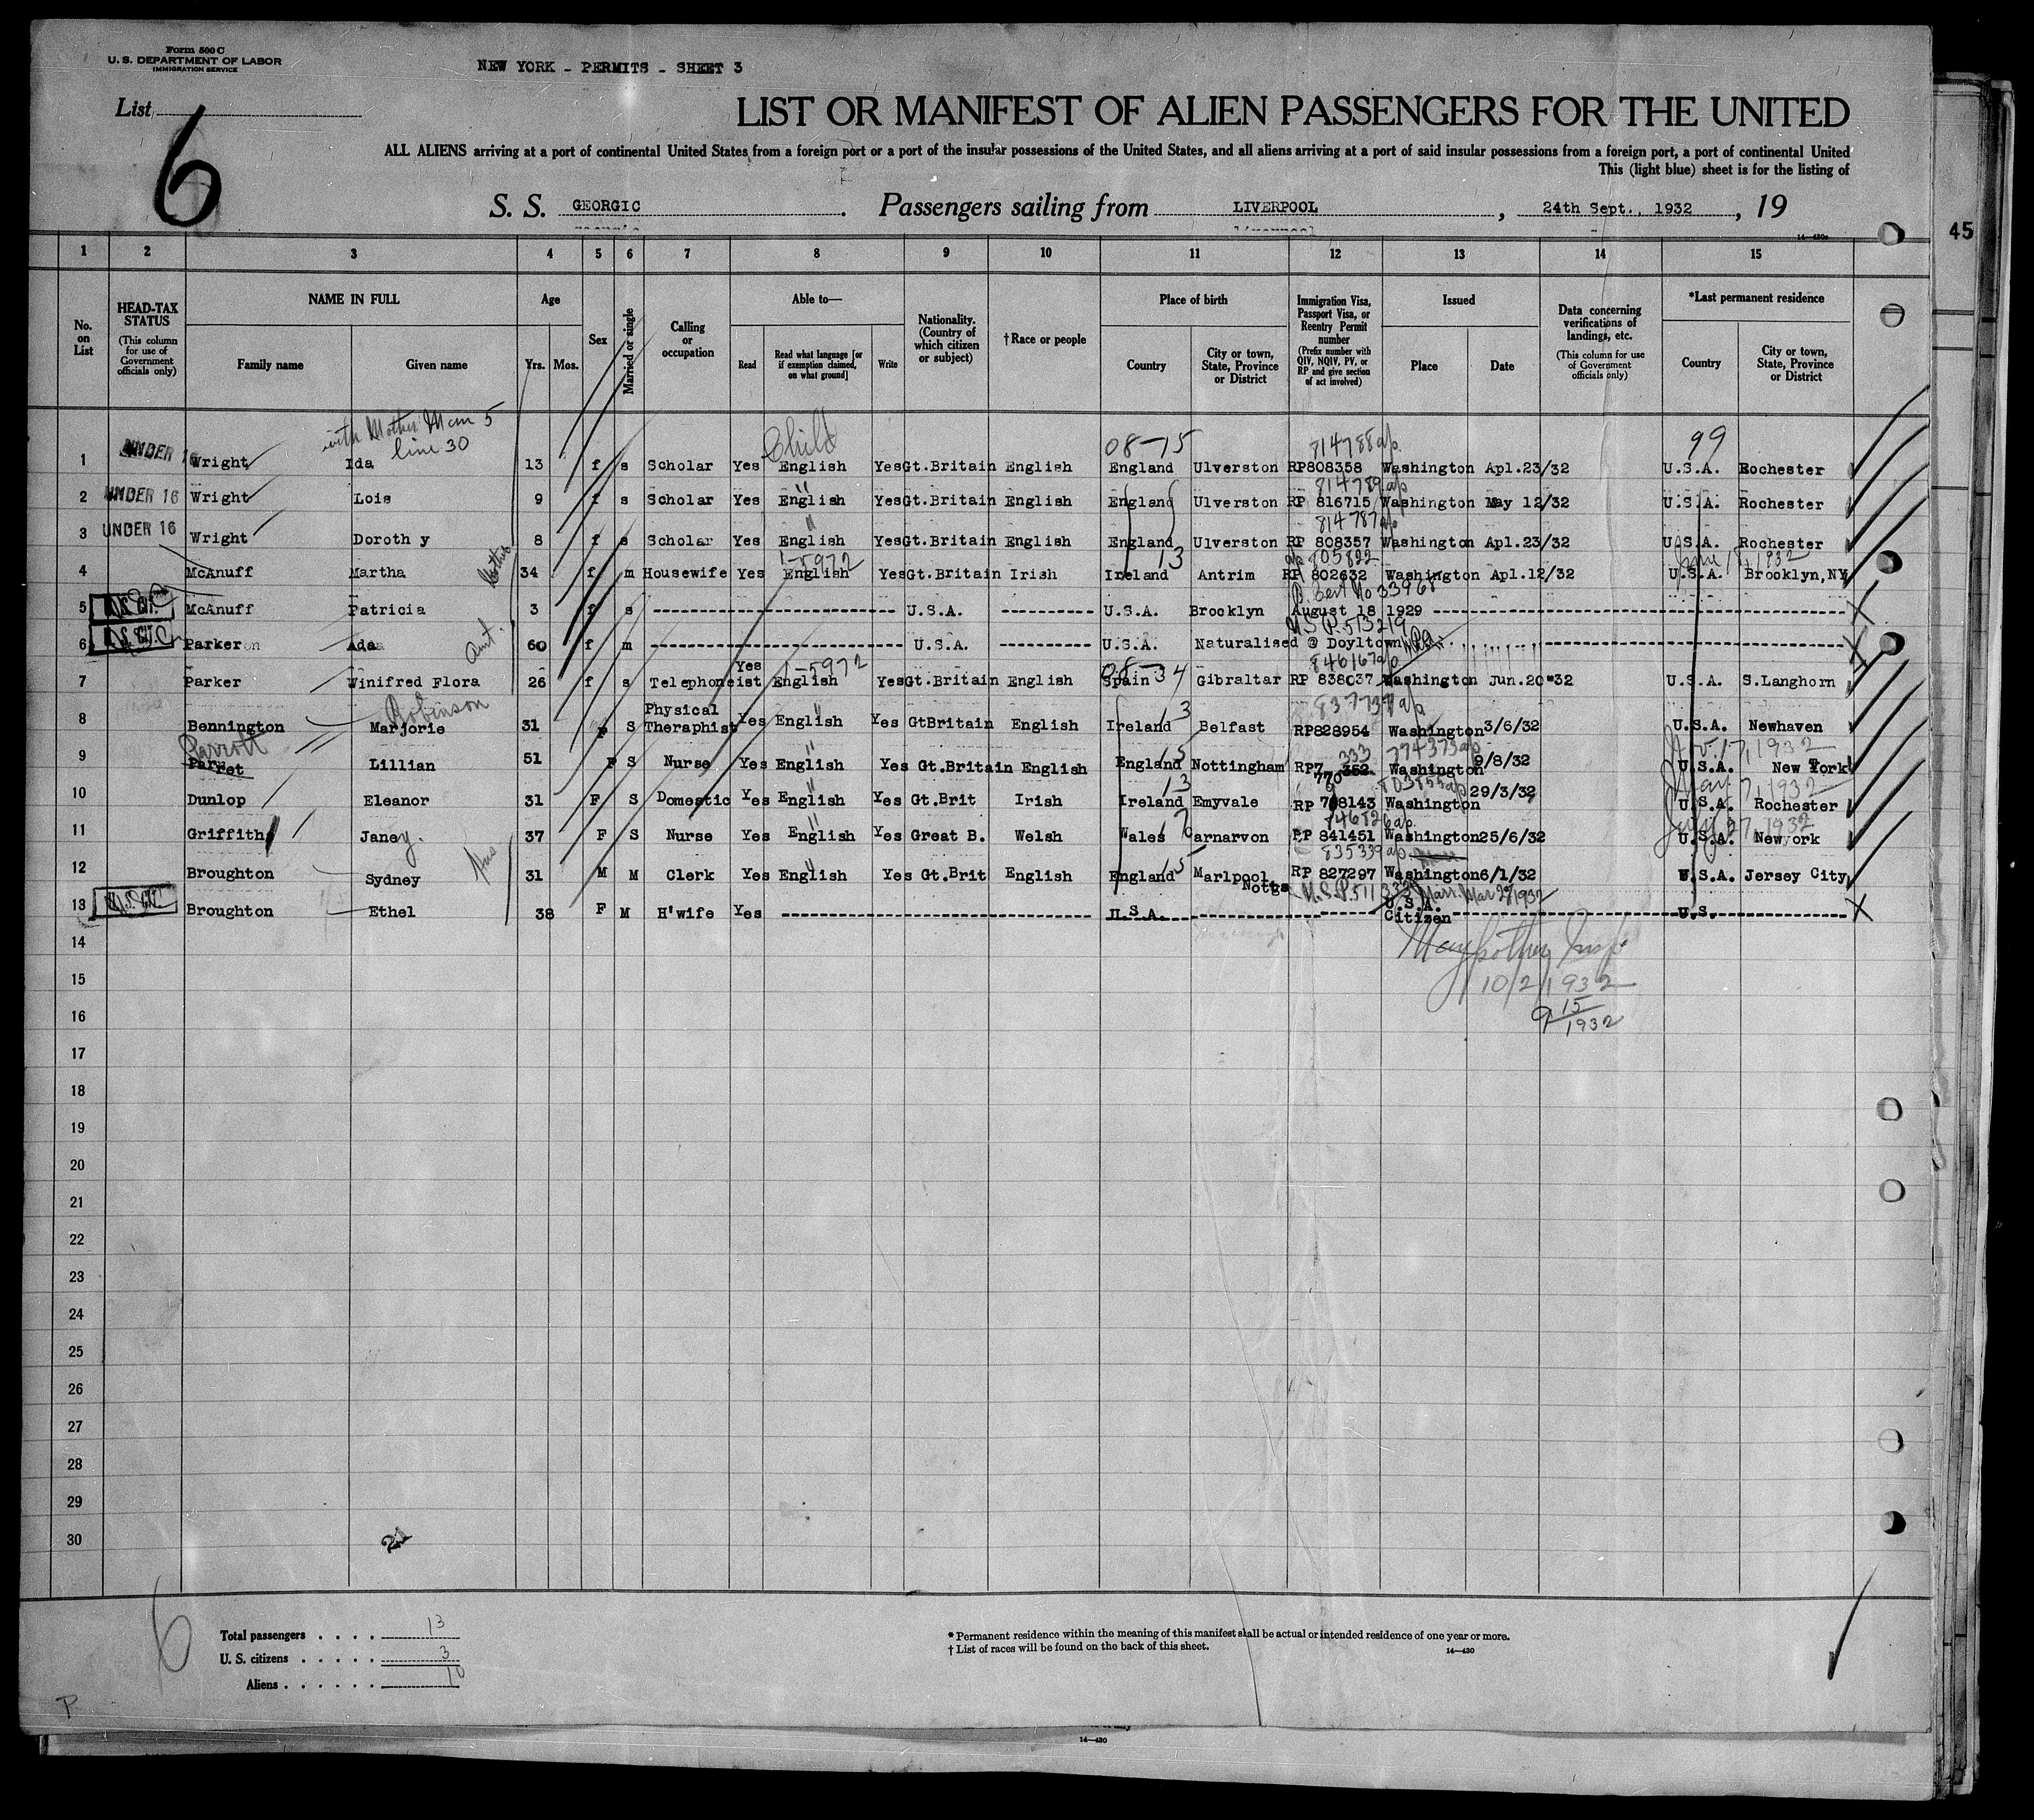 Form 500 C
U. S. DEPARTMENT OF LABOR
IMMIGRATION SERVICE
NEW YORK - PERMITS - SHEET 3
List
6
LIST OR MANIFEST OF ALIEN PASSENGERS FOR THE UNITED
ALL ALIENS arriving at a port of continental United States from a foreign port or a port of the insular possessions of the United States, and all aliens arriving at a port of said insular possessions from a foreign port, a port of continental United
This (light blue) sheet is for the listing of
S. S. GEORGIC. Passengers sailing from LIVERPOOL, 24th Sept., 1932, 19
14—430a
45
1 2 3 4 5 6 7 8 9 10 11 12 13 14 15
No. on List
HEAD-TAX STATUS (This column for use of Government officials only)
NAME IN FULL Family name Given name
Age Yrs. Mos.
Sex
Married or single
Calling or occupation
Able to— Read Read what language [or if exemption claimed, on what ground] Write
Nationality. (Country of which citizen or subject)
†Race or people
Place of birth Country City or town, State, Province or District
Immigration Visa, Passport Visa, or Reentry Permit number (Prefix number with QIV, NQIV, PV, or RP and give section of act involved)
Issued Place Date
Data concerning verifications of landings, etc. (This column for use of Government officials only)
*Last permanent residence Country City or town, State, Province or District
with Mother Mem 5 line 30 Child 08-15 814788 a/p 99
1 UNDER 16 Wright Ida 13 f s Scholar Yes English Yes Gt.Britain English England Ulverston RP808358 Washington Apl.23/32 U.S.A. Rochester
" 814789 a/p
2 UNDER 16 Wright Lois 9 f s Scholar Yes English Yes Gt.Britain English England Ulverston RP 816715 Washington May 12/32 U.S.A. Rochester
" 814787 a/p
3 UNDER 16 Wright Dorothy 8 f s Scholar Yes English Yes Gt.Britain English England Ulverston RP 808357 Washington Apl.23/32 U.S.A. Rochester
Mother 1-5972 13 a/p 805822
4 McAnuff Martha 34 f m Housewife Yes English Yes Gt.Britain Irish Ireland Antrim RP 802632 Washington Apl.12/32 U.S.A. Brooklyn,NY
B. Cert No 33968
5 U.S. CIT. McAnuff Patricia 3 f s U.S.A. U.S.A. Brooklyn August 18 1929
Aunt. U.S.P. 513219
6 U.S. CIT. Parker Ada 60 f m U.S.A. U.S.A. Naturalised @ Doyltown
1-5972 08-34 846167 a/p
7 Parker Winifred Flora 26 f s Telephoneist Yes English Yes Gt.Britain English Spain Gibraltar RP 838037 Washington Jun.20*32 U.S.A. S.Langhorn
Robinson " 13 837737 a/p
8 Bennington Marjorie 31 F S Physical Theraphist Yes English Yes GtBritain English Ireland Belfast RP828954 Washington 3/6/32 U.S.A. Newhaven
Parrott " 15 333 774373 a/p
9 Parret Lillian 51 F S Nurse Yes English Yes Gt.Britain English England Nottingham RP7 352 770 Washington 9/8/32 U.S.A. New York
" 13 803855 a/p
10 Dunlop Eleanor 31 F S Domestic Yes English Yes Gt.Brit Irish Ireland Emyvale RP 798143 Washington 29/3/32 U.S.A. Rochester
" 846826 a/p
11 Griffith Janey. 37 F S Nurse Yes English Yes Great B. Welsh Wales Carnarvon RP 841451 Washington 25/6/32 July 27, 1932 U.S.A. Newyork
" 15 835339 a/p
12 Broughton Sydney 31 M M Clerk Yes English Yes Gt.Brit English England Marlpool Notts RP 827297 Washington 6/1/32 U.S.A. Jersey City
13 U.S. CIT. Broughton Ethel 38 F M H'wife Yes U.S.A. U.S.A. Citizen U.S.
14
10/2/1932
15
9/15/1932
16
17
18
19
20
21
22
23
24
25
26
27
28
29
30
21
6
Total passengers 13
U. S. citizens 3
Aliens 10
* Permanent residence within the meaning of this manifest shall be actual or intended residence of one year or more.
† List of races will be found on the back of this sheet.
14—430
P.
14—430